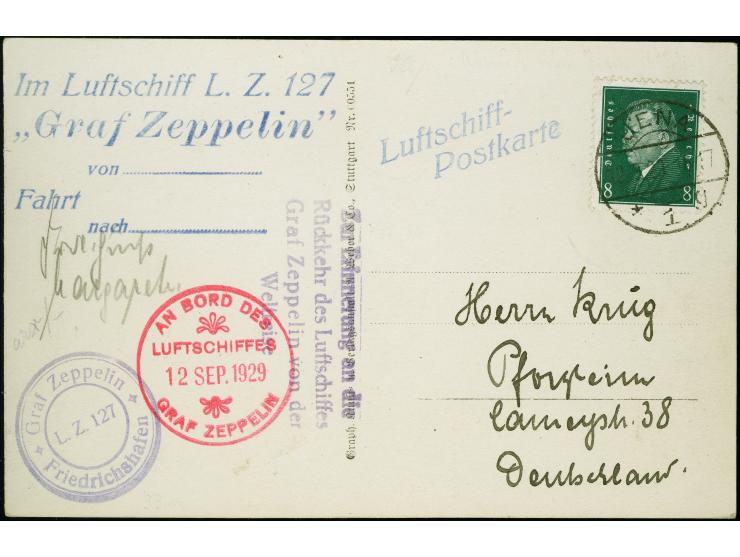 Im Luftschiff L. Z. 127
„Graf Zeppelin”
von
Fahrt
nach
Margareth.
AN BORD DES
LUFTSCHIFFES
12 SEP. 1929
GRAF ZEPPELIN
Graf Zeppelin
L. Z. 127
Friedrichshafen
Zur Erinnerung an die
Rückkehr des Luftschiffes
Graf Zeppelin von der
Weltreise
& Co., Stuttgart Nr. 60551
Luftschiff-
Postkarte
Deutsches Reich
8 8
JENA
Herrn Krug
Pforzheim
Lameystr. 38
Deutschland.